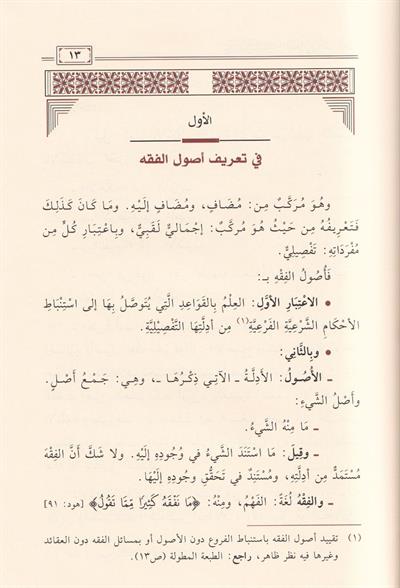 ١٣
الأول
في تعريف أصول الفقه
وهُوَ مُرَكَّبٌ مِن: مُضَافٍ، ومُضَافٍ إلَيْهِ. ومَا كَانَ كَذَلِكَ
فَتَعْرِيفُهُ مِن حَيْثُ هُوَ مُرَكَّبٌ: إجْمَالِيٌّ لَقَبِيٌّ، وبِاعْتِبَارِ كُلٍّ مِن
مُفْرَدَاتِهِ: تَفْصِيلِيٌّ.
فَأُصُولُ الفِقْهِ بـ:
• الاعْتِبَارِ الأوَّلِ: العِلْمُ بِالقَوَاعِدِ الَّتِي يُتَوَصَّلُ بِهَا إلى اسْتِنْبَاطِ
الأحْكَامِ الشَّرْعِيَّةِ الفَرْعِيَّةِ(١) مِن أدِلَّتِهَا التَّفْصِيلِيَّةِ.
• وبِالثَّانِي:
ـ الأُصُولُ: الأدِلَّةُ ـ الآتِي ذِكْرُهَا ـ، وهِيَ: جَمْعُ أصْلٍ.
وأصْلُ الشَّيْءِ:
ـ مَا مِنْهُ الشَّيْءُ.
ـ وقِيلَ: مَا اسْتَنَدَ الشَّيْءُ في وُجُودِهِ إلَيْهِ. ولا شَكَّ أنَّ الفِقْهَ
مُسْتَمَدٌّ مِن أدِلَّتِهِ، ومُسْتَنِدٌ في تَحَقُّقِ وجُودِهِ إلَيْهَا.
ـ والفِقْهُ لُغَةً: الفَهْمُ، ومِنْهُ: ﴿مَا نَفْقَهُ كَثِيرًا مِّمَّا تَقُولُ﴾ [هود: ٩١]
(١) تقييد أصول الفقه باستنباط الفروع دون الأصول أو بمسائل الفقه دون العقائد
وغيرها فيه نظر ظاهر، راجع: الطبعة المطولة (ص١٣).